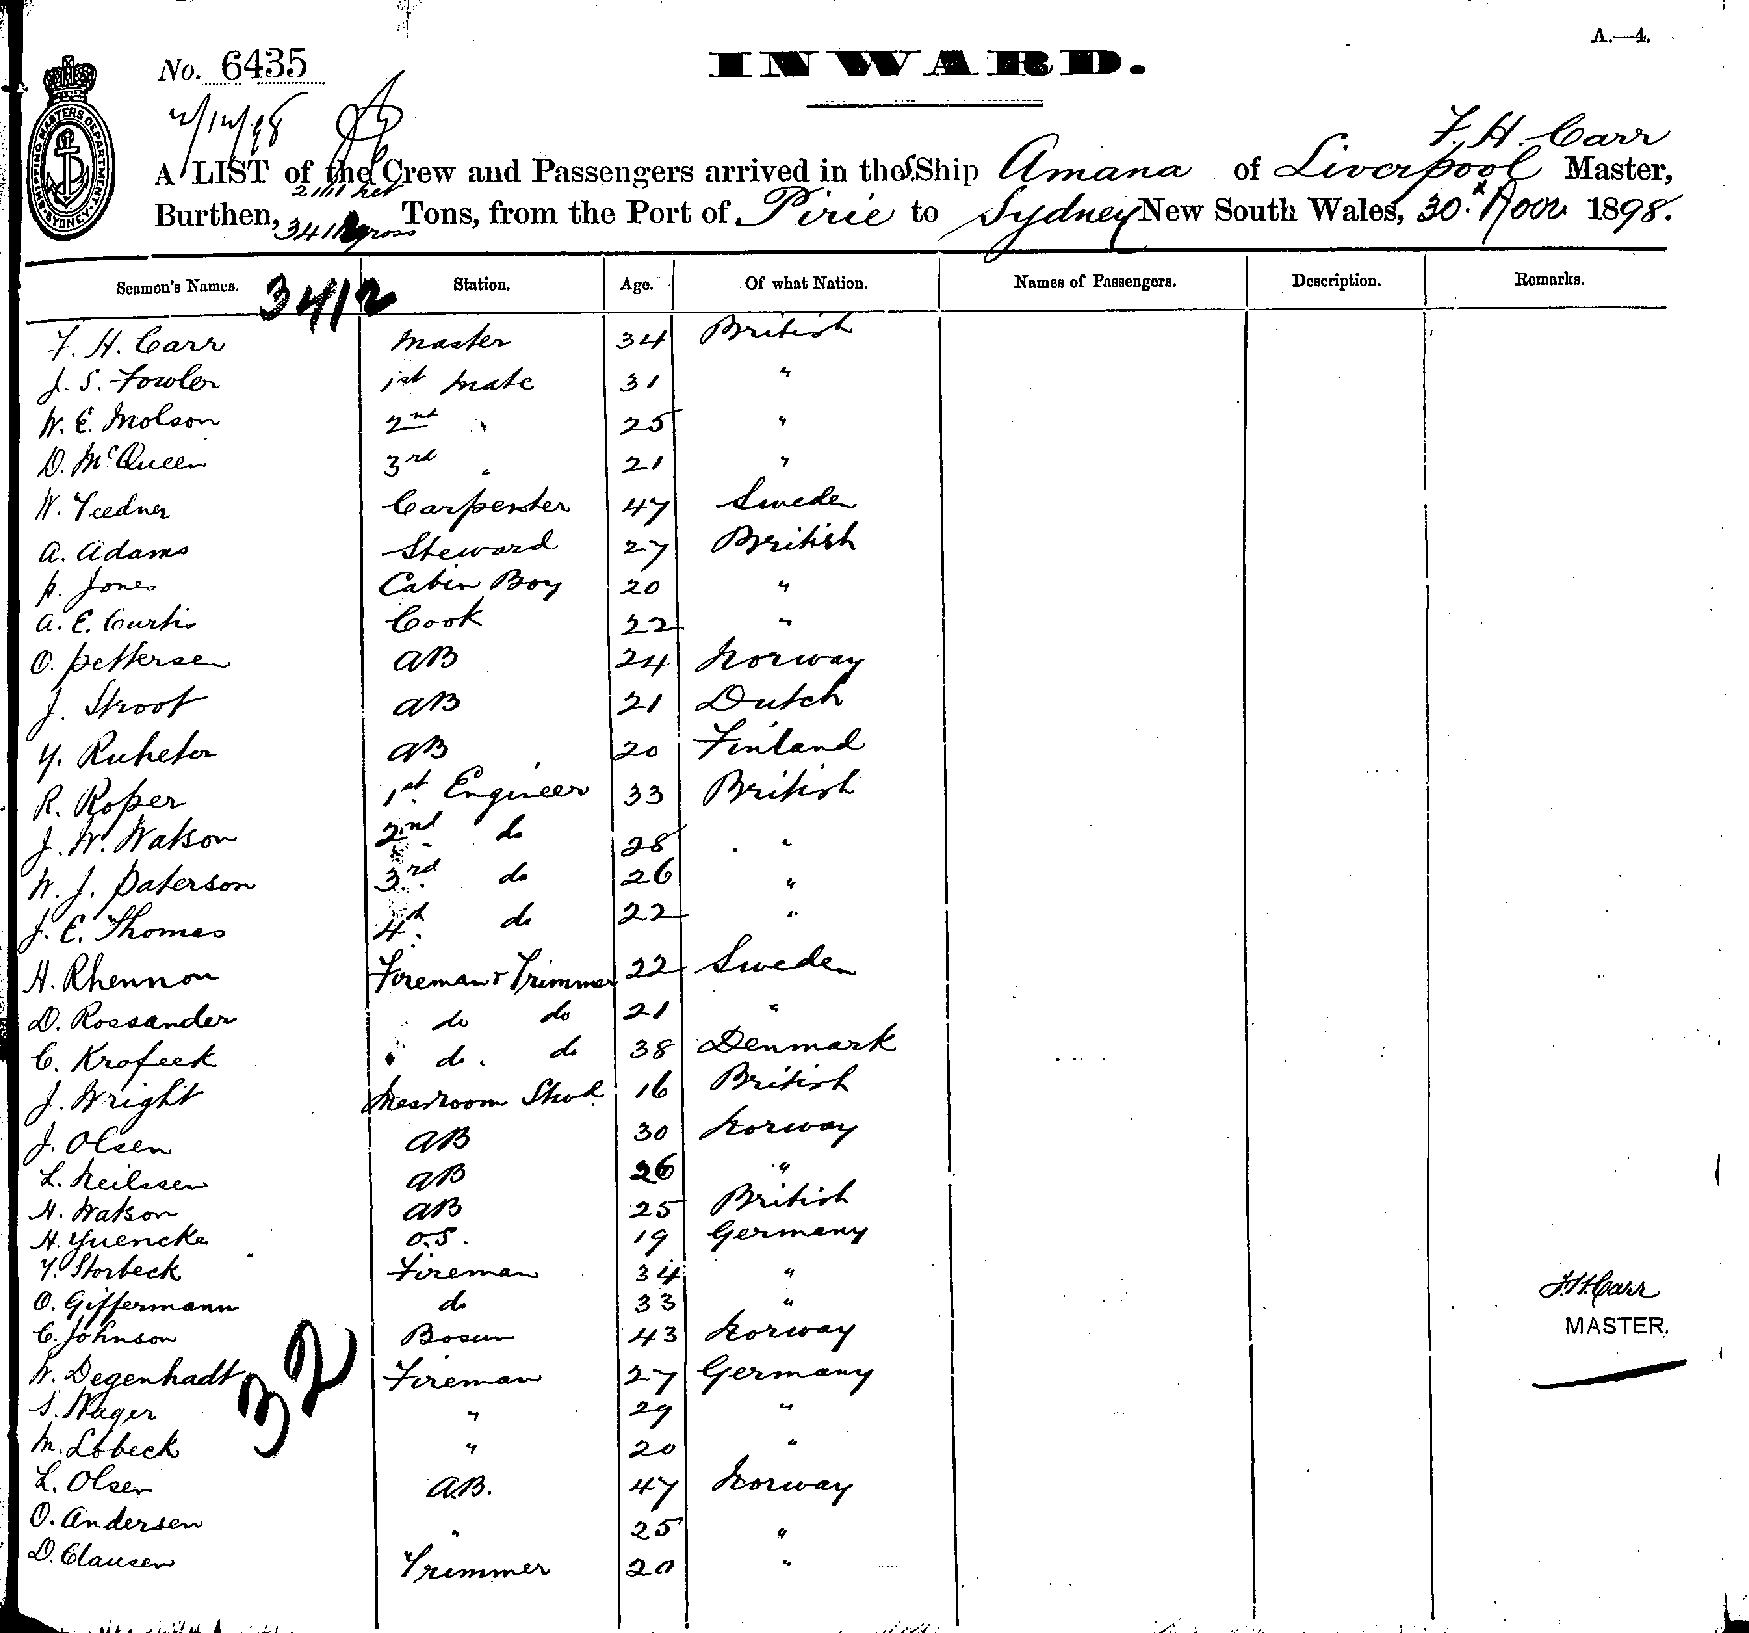 A.—4.
No. 6435
INWARD.
2/12/98
F. H. Carr
A LIST of the Crew and Passengers arrived in the S. Ship Amana of Liverpool Master,
Burthen, 3411 gross Tons, from the Port of Pirie to Sydney New South Wales, 30th Novr. 1898.
Seamen's Names. Station. Age. Of what Nation. Names of Passengers. Description. Remarks.
3412
F. H. Carr Master 34 British
J. S. Fowler 1st Mate 31 "
W. E. Molson 2nd " 25 "
D. McQueen 3rd " 21 "
W. Teedner Carpenter 47 Sweden
A. Adams Steward 27 British
P. Jones Cabin Boy 20 "
A. E. Curtis Cook 22 "
O. Pettersen AB 24 Norway
J. Stroot AB 21 Dutch
Y. Ruhetor AB 20 Finland
R. Roper 1st Engineer 33 British
J. W. Watson 2nd do 28 "
W. J. Paterson 3rd do 26 "
J. E. Thomas 4th do 22 "
H. Rhennon Fireman & Trimmer 22 Sweden
D. Rossander do do 21 "
C. Krofeek do do 38 Denmark
J. Wright Messroom Stwd 16 British
J. Olsen AB 30 Norway
L. Neilssen AB 26 "
H. Watson AB 25 British
H. Yuencke O.S. 19 Germany
F. Storbeck Fireman 34 "
O. Giffermann do 33 "
C. Johnson Bosun 43 Norway
W. Degenhadt Fireman 27 Germany
S. Wager " 29 "
M. Lobeck " 20 "
L. Olsen A.B. 47 Norway
O. Andersen " 25 "
D. Clausen Trimmer 20 "
32
F. H. Carr
MASTER.